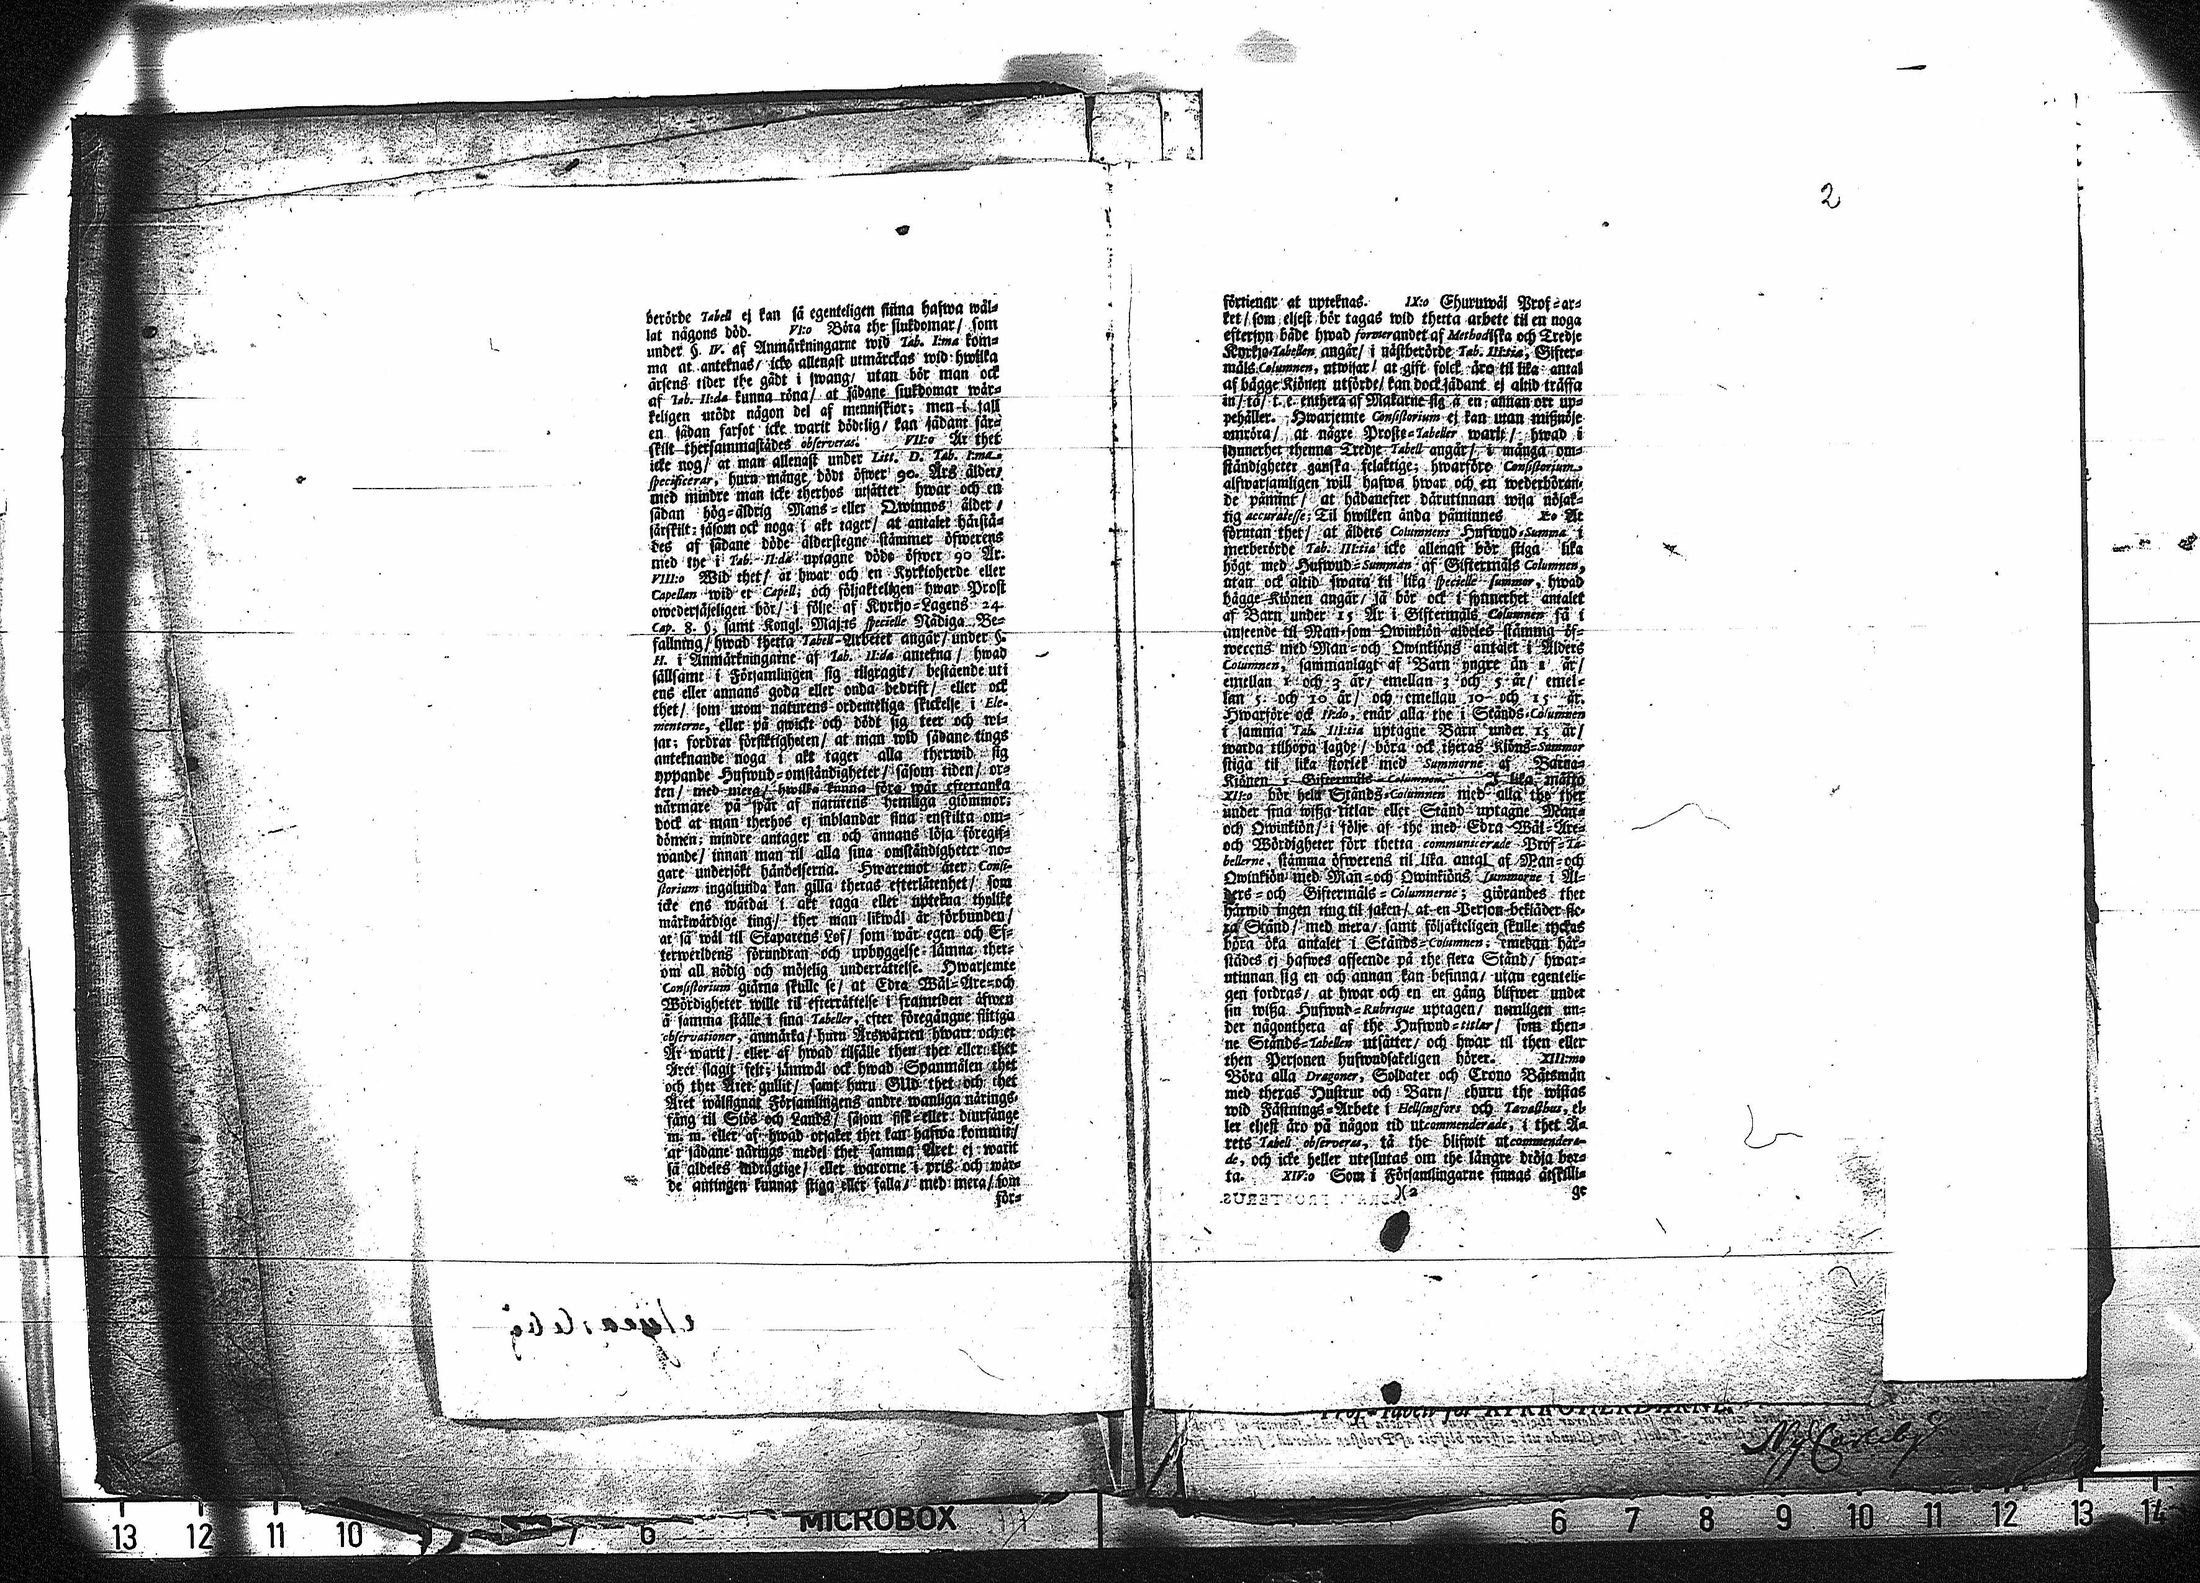 berörde Tabell ej kan så egenteligen sijna hafwa wål-
lat någons död. VI:o Böra the siukdomar/ som
under §. IV. af Anmärkningarne wid Tab. I:ma kom-
ma at anteknas/ icke allenast utmärckas wid hwilka
årsens tider the gådt i swang/ utan bör man ock
af Tab. II:da kunna röna/ at sådane siukdomar wär-
keligen utödt någon del af menniskior; men i fall
en sådan farsot icke warit dödelig/ kan sådant sär-
skilt thersammastädes observeras. VII:o Är thet
icke nog/ at man allenast under Litt. D. Tab. I:ma
specificerar, huru månge dödt öfwer 90. Års ålder/
med mindre man icke therhos utsätter hwar och en
sådan hög-åldrig Mans- eller Qwinnos ålder/
särskilt; såsom ock noga i akt tager/ at antalet härstä-
des af sådane döde ålderstegne stämmer öfwerens
med the i Tab. II:da uptagne döde öfwer 90 År.
VIII:o Wid thet/ at hwar och en Kyrkioherde eller
Capellan wid et Capell, och följakteligen hwar Prost
owedersäjeligen bör/ i följe af Kyrkjo-Lagens 24.
Cap. 8. §, samt Kongl. Maj:ts specielle Nådiga Be-
fallning/ hwad thetta Tabell-Arbetet angår/ under §.
H. i Anmärkningarne af Tab. II:da antekna/ hwad
sällsamt i Församlingen sig tilgragit/ bestående uti
ens eller annans goda eller onda bedrift/ eller ock
thet/ som utom naturens ordenteliga skickelse i Ele-
menterne, eller på qwickt och dödt sig teer och wi-
sar; fordrar försiktigheten/ at man wid sådane tings
anteknande noga i akt tager alla therwid sig
yppande Hufwud-omständigheter/ såsom tiden/ or-
ten/ med mera/ hwilka kunna föra wår eftertanka
närmare på spår af naturens hemliga giömmor;
dock at man therhos ej inblandar sina enskilta om-
dömen; mindre antager en och annans lösa föregif-
wande/ innan man til alla sina omständigheter no-
gare undersökt händelserna. Hwaremot åter Consi-
storium ingalunda kan gilla theras efterlåtenhet/ som
icke ens wårdat i akt taga eller uptekna thylike
märkwärdige ting/ ther man likwäl är förbunden/
at så wäl til Skaparens Lof/ som wår egen och Ef-
terwerldens förundran och upbyggelse lämna ther-
om all nödig och möjelig underrättelse. Hwarjemte
Consistorium giärna skulle se/ at Edra Wäl-Äre-och
Wördigheter wille til efterrättelse i framtiden äfwen
å samma ställe i sina Tabeller, efter föregångne flitiga
observationer, anmärka/ huru Årswäxten hwart och et
År warit/ eller af hwad tilfälle then ther eller thet
Året slagit felt; jämwäl ock hwad Spanmålen thet
och thet Året gullit/ samt huru GUd thet och thet
Året wälsignat Församlingens andre wanliga närings-
fång til Siös och Lands/ såsom fisk-eller diurfänge
m. m. eller af hwad orsaker thet kan hafwa kommit/
at sådane närings medel thet samma Året ej warit
så aldeles indrägtige/ eller warorne i pris och wär-
de antingen kunnat stiga eller falla/ med mera/ som
för-
2
förtienar at upteknas. IX:o Ehuruwäl Prof-ar-
ket/ som eljest bör tagas wid thetta arbete til en noga
eftersyn både hwad formerandet af Methodiska och Tredje
Kyrkjo-Tabellen angår/ i nästberörde Tab. III:tia, Gifter-
måls Columnen, utwisar/ at gift folck äro til lika antal
af bägge Kiönen utförde/ kan dock sådant ej altid träffa
in/ tå/ t. e. enthera af Makarne sig å en annan ort up-
pehåller. Hwarjemte Consistorium ej kan utan mißnöje
omröra/ at någre Proste-Tabeller warit/ hwad i
synnerhet thenna Tredje Tabell angår/ i många om-
ständigheter ganska felaktige; hwarföre Consistorium
alfwarsamligen will hafwa hwar och en wederböran-
de påmint/ at hädanefter därutinnan wisa nöjak-
tig accuratesse; Til hwilken ända påminnes X:o At
förutan thet/ at ålders Columnens Hufwud-Summa i
merberörde Tab. III:tia icke allenast bör stiga lika
högt med Hufwud-Summan af Giftermåls Columnen,
utan ock altid swara til lika specielle summor, hwad
bägge Kiönen angår/ så bör ock i synnerhet antalet
af Barn under 15 År i Giftermåls Columnen så i
anseende til Man-som Qwinkiön aldeles stämma öf-
werens med Man-och Qwinkiöns antalet i Ålders
Columnen, sammanlagt af Barn yngre än 1 år/
emellan 1 och 3 år/ emellan 3 och 5 år/ emel-
lan 5 och 10 år/ och emellan 10 och 15 år.
Hwarföre ock II:do, enär alla the i Stånds-Columnen
i samma Tab. III:tia uptagne Barn under 15 år/
warda tilhopa lagde/ böra ock theras Kiöns-Summor
stiga til lika storlek med Summorne af Barna-
Kiönen i Giftermåls-Columnen. I lika måtto
XII:o bör hela Stånds-Columnen med alla the ther
under sina wißa titlar eller Stånd uptagne Man-
och Qwinkiön/ i följe af the med Edra Wäl-Äre-
och Wördigheter förr thetta communicerade Prof-Ta-
bellerne, stämma öfwerens til lika antal af Man-och
Qwinkiön med Man-och Qwinkiöns summorne i Ål-
ders-och Giftermåls-Columnerne; giörandes thet
härwid ingen ting til saken/ at en Person bekläder fle-
ra Stånd/ med mera/ samt följakteligen skulle tyckas
böra öka antalet i Stånds-Columnen; emedan här-
städes ej hafwes afseende på the flera Stånd/ hwar-
utinnan sig en och annan kan befinna/ utan egenteli-
gen fordras/ at hwar och en en gång blifwer under
sin wißa Hufwud-Rubrique uptagen/ nemligen un-
der någonthera af the Hufwud-titlar/ som then-
ne Stånds-Tabellen utsätter/ och hwar til then eller
then Personen hufwudsakeligen hörer. XIII:mo
Böra alla Dragoner, Soldater och Crono Båtsmän
med theras Hustrur och Barn/ ehuru the wistas
wid Fästnings-Arbete i Helsingfors och Tavasthus, el-
ler eljest äro på någon tid utcommenderade, i thet Å-
rets Tabell observeras, tå the blifwit utcommendera-
de, och icke heller uteslutas om the längre dröja bor-
ta. XIV:o Som i Församlingarne finnas åtskilli-
)(2
ge
Prof-Tabell för KYRKOHERDARNE.
MICROBOX
13 12 11 10 7 6 6 7 8 9 10 11 12 13 14